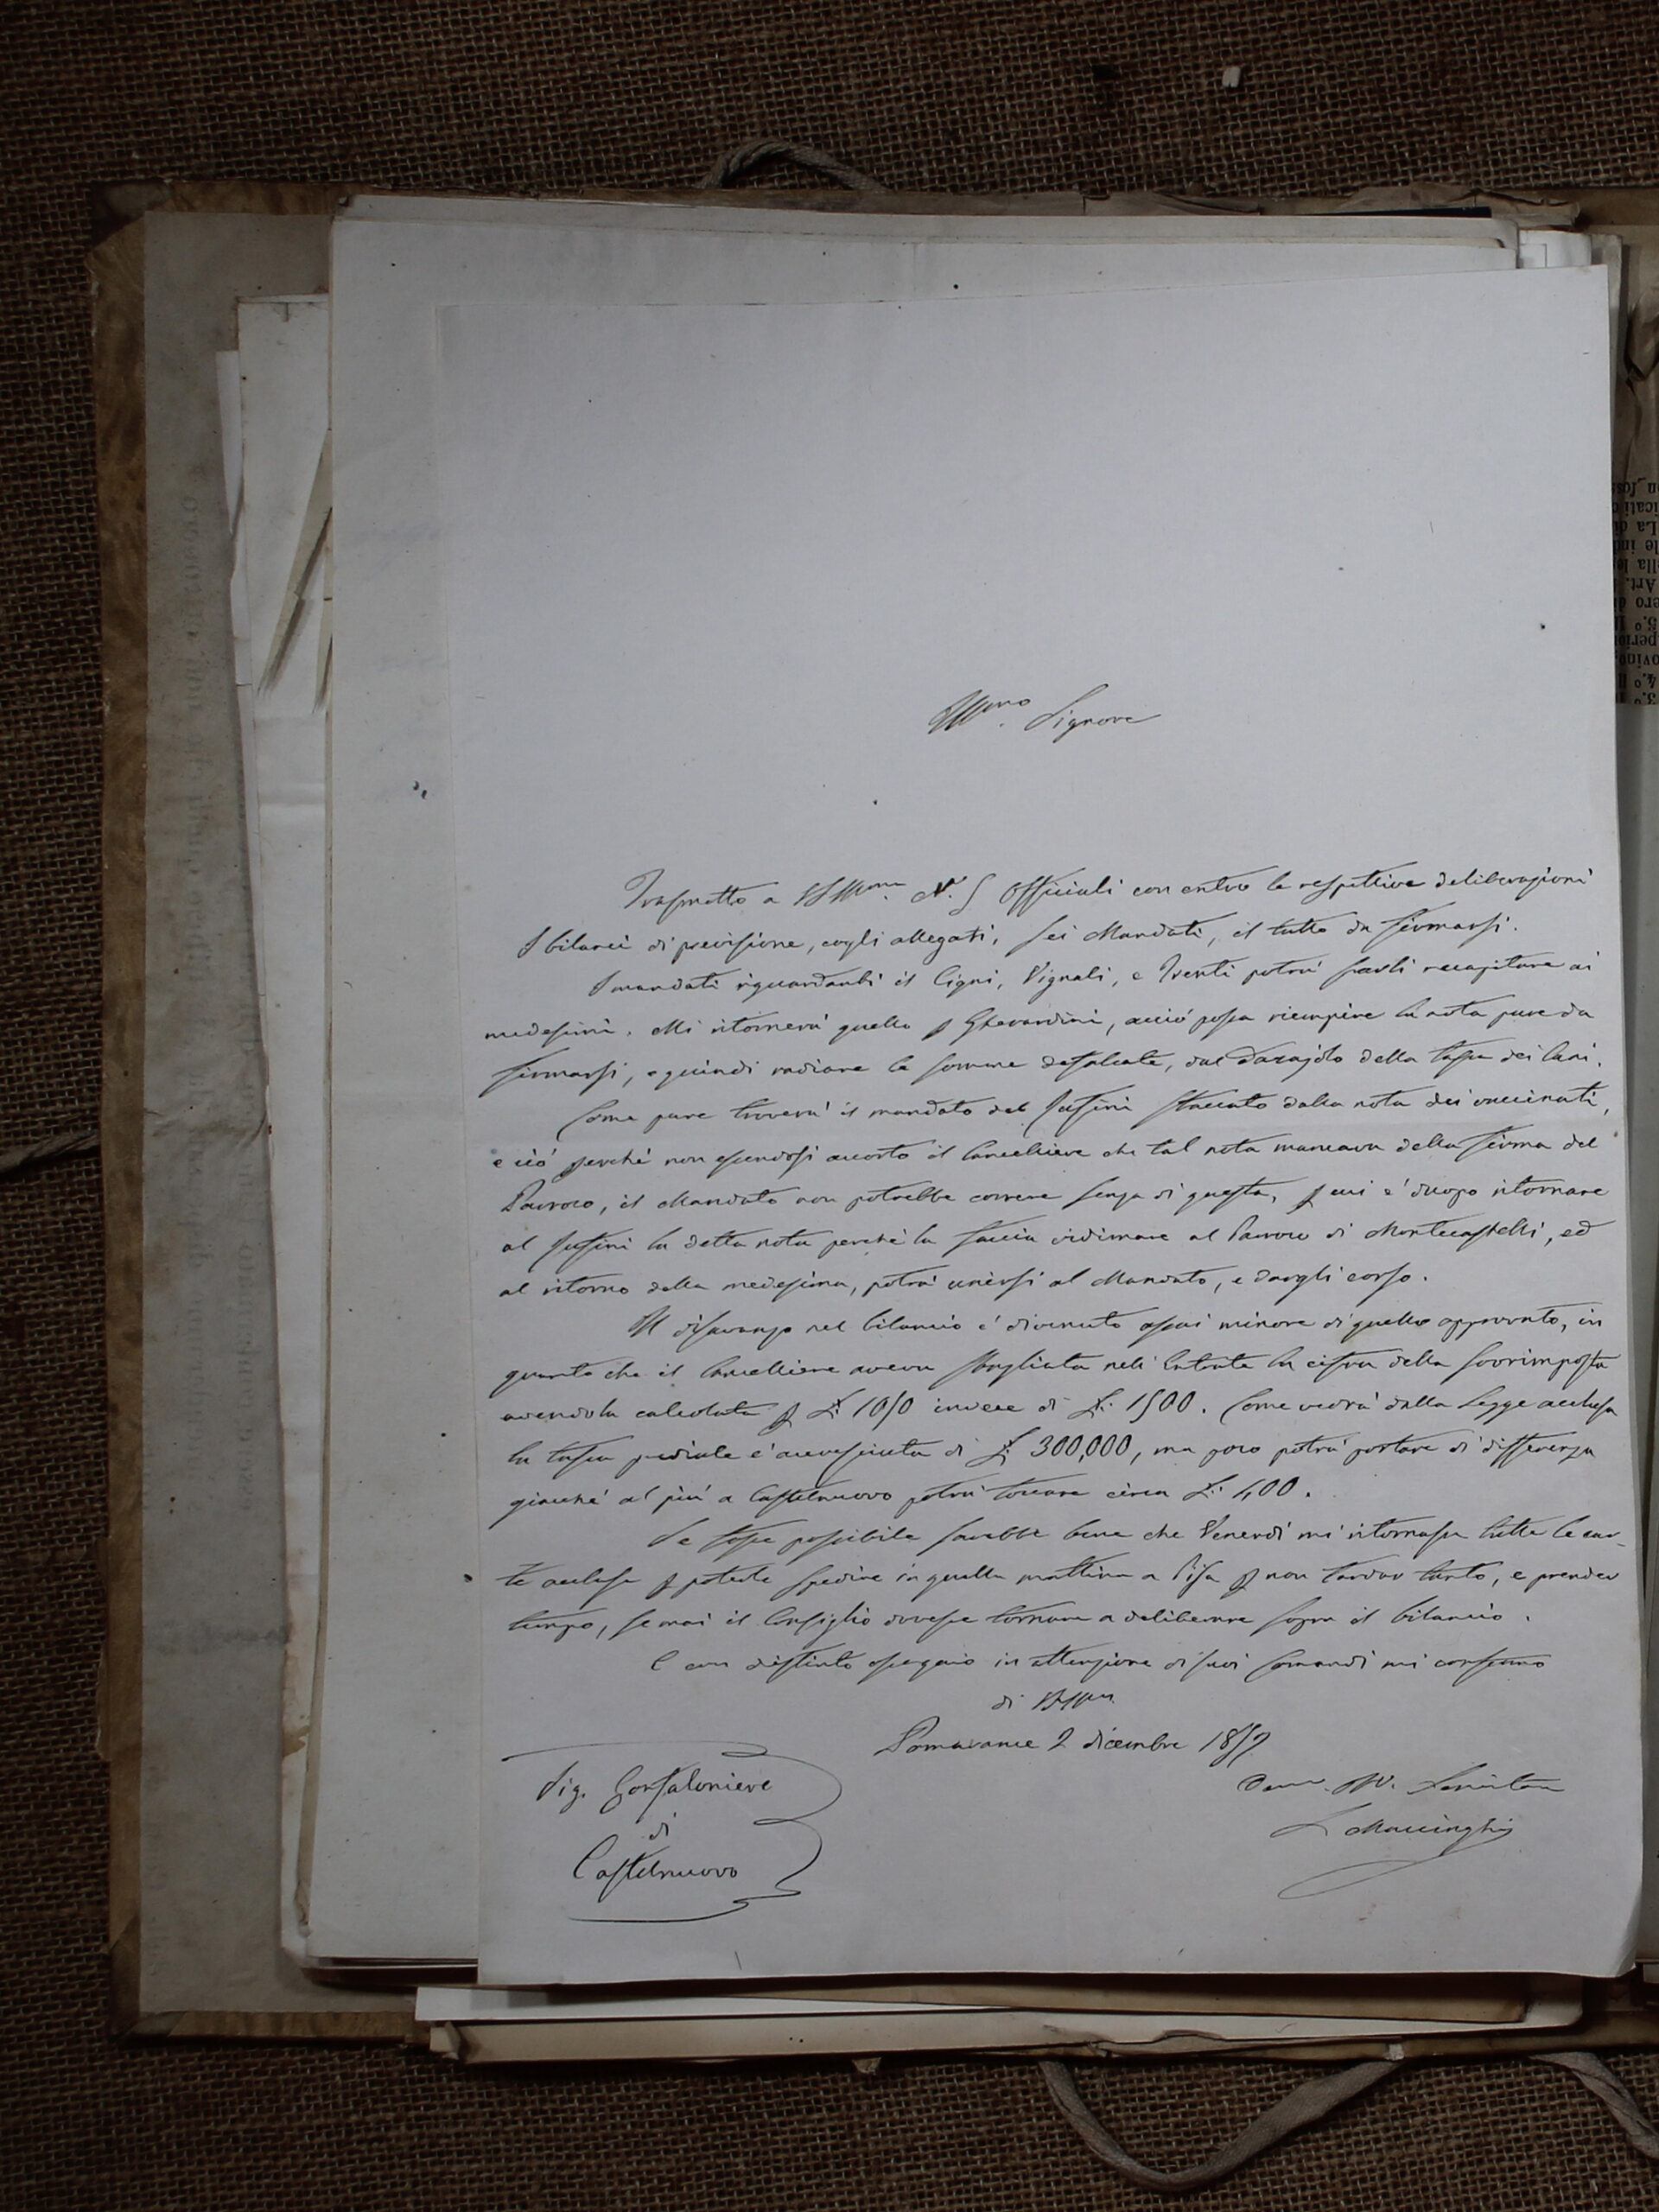 Illmo. Signore
Trasmetto a VS Illma. N. 5 Officiali con entro le respettive deliberazioni
I bilanci di previsione, cogli allegati, sei Mandati, il tutto da firmarsi.
I mandati riguardanti il Cigni, Vignali, e Trenti potrà farli recapitare ai
medesimi. Mi ritornerà quello p Gherardini, acciò possa riempire la nota pure da
firmarsi, e quindi radiare le somme defalcate, dal Dazajolo della tassa dei Cani.
Come pure troverà il mandato del Susini staccato dalla nota dei vaccinati,
e ciò perché non essendosi accorto il Cancelliere che tal nota mancava della firma del
Parroco, il Mandato non potrebbe correre senza di questa, p cui è duopo ritornare
al Susini la detta nota perché la faccia vidimare al Parroco di Montecastelli, ed
al ritorno della medesima, potrà unirsi al Mandato, e dargli corso.
Il disavanzo nel bilancio è divenuto assai minore di quello approvato, in
quanto che il Cancelliere aveva sbagliata nell'Entrata la cifra della Sovrimposta
avendola calcolata p £. 1050 invece di £. 1500. Come vedrà dalla Legge acclusa
la tassa prediale è accresciuta di £. 300,000, ma poco potrà portare di differenza
giacché al più a Castelnuovo potrà toccare circa £. 400.
Se fosse possibile sarebbe bene che Venerdì mi ritornasse tutte le car-
te accluse p poterle spedire in quella mattina a Pisa p non tardar tanto, e prender
tempo, se mai il Consiglio dovesse tornare a deliberare sopra il bilancio.
E con distinto ossequio in attenzione di suoi Comandi mi confermo
di VS Illma
Pomarance 2 dicembre 1857
Sig. Gonfaloniere
di
Castelnuovo
Servitore
L Maccinghi